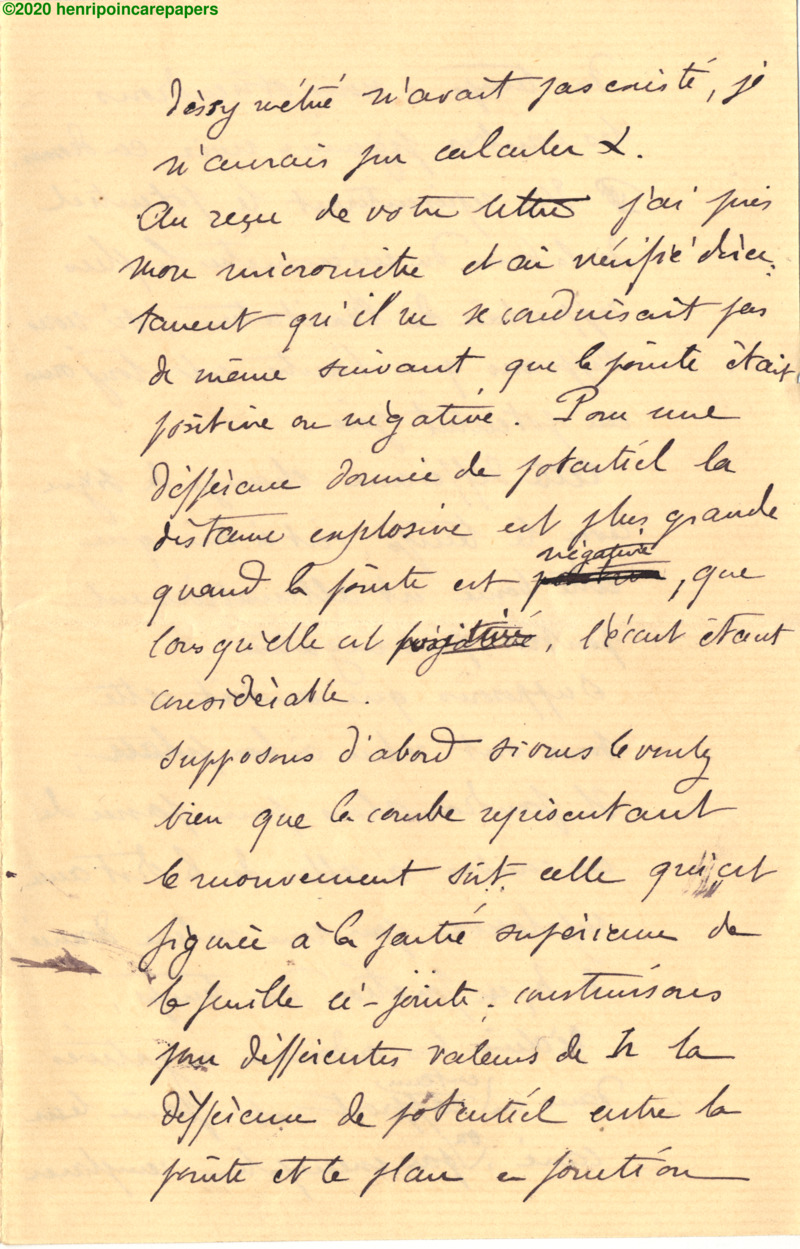 ©2020 henripoincarepapers
dissymétrie n'avait pas existé, je
n'aurais pu calculer α.
Au reçu de votre lettre j'ai pris
mon micromètre et ai vérifié direc-
tement qu'il ne se conduisait pas
de même suivant que la pointe était
positive ou négative. Pour une
différence donnée de potentiel la
distance explosive est plus grande
négative
quand la pointe est, que
lorsqu'elle est positive, l'écart étant
considérable.
Supposons d'abord si vous le voulez
bien que la courbe représentant
le mouvement soit celle qui est
figurée à la partie supérieure de
la feuille ci-jointe. construisons
pour différentes valeurs de h la
différence de potentiel entre la
pointe et le plan en fonction